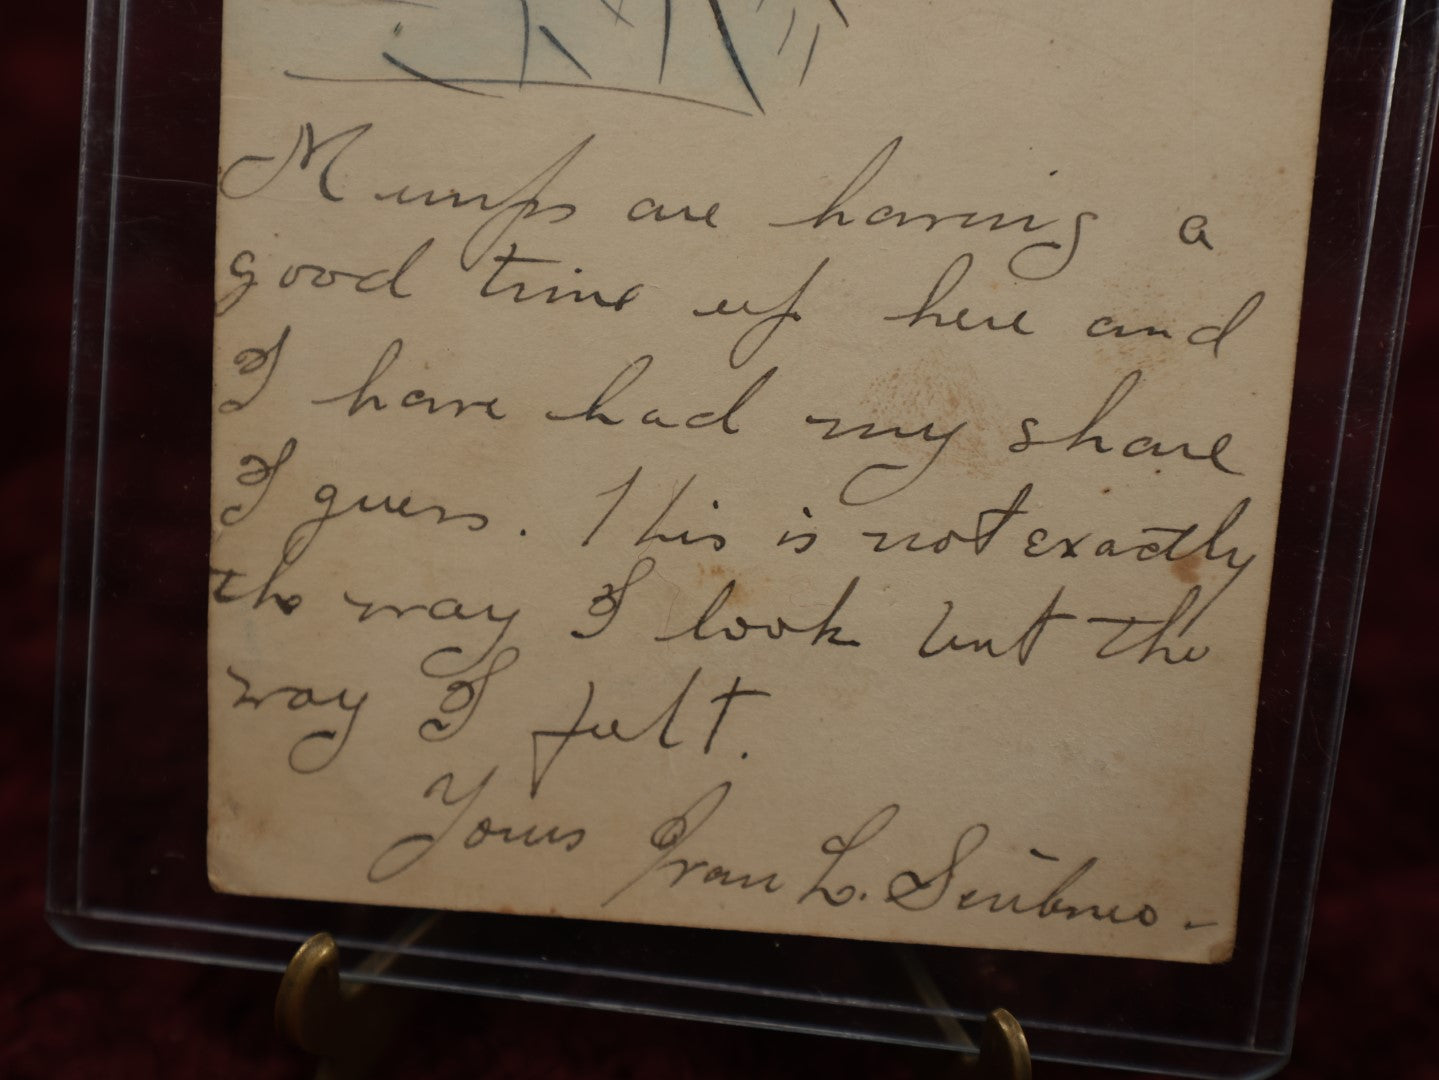 Mumps are having a
good time up here and
I have had my share
I guess. This is not exactly
the way I look but the
way I felt.
Yours Fran L. Scribner -